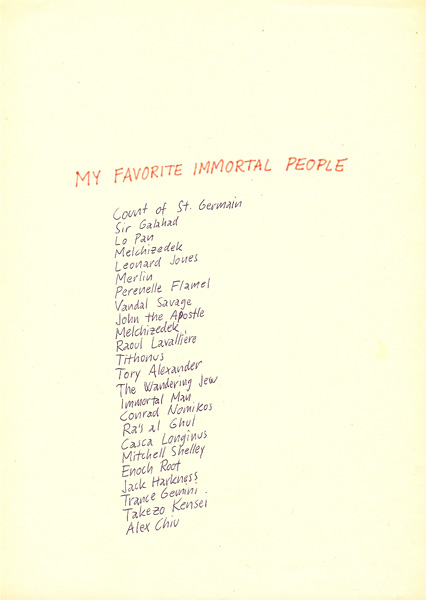 MY FAVORITE IMMORTAL PEOPLE
Count of St. Germain
Sir Galahad
Lo Pan
Melchizedek
Leonard Jones
Merlin
Perenelle Flamel
Vandal Savage
John the Apostle
Melchizedek
Raoul Lavalliere
Tithonus
Tory Alexander
The Wandering Jew
Immortal Man
Conrad Nomikos
Ra's al Ghul
Casca Longinus
Mitchell Shelley
Enoch Root
Jack Harkness
Trance Gemini
Takezo Kensei
Alex Chiu